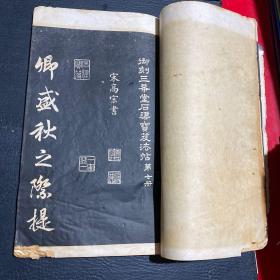 御刻三希堂石渠寶笈法帖第七冊
宋高宗書
卿盛秋之際提